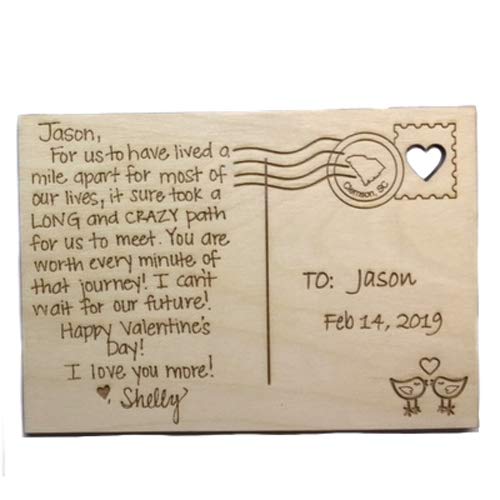 Jason,
For us to have lived a
mile apart for most of
our lives, it sure took a
LONG and CRAZY path
for us to meet. You are
worth every minute of
that journey! I can't
wait for our future!
Happy Valentine's
Day!
I love you more!
Shelly
Clemson, SC
TO: Jason
Feb 14, 2019